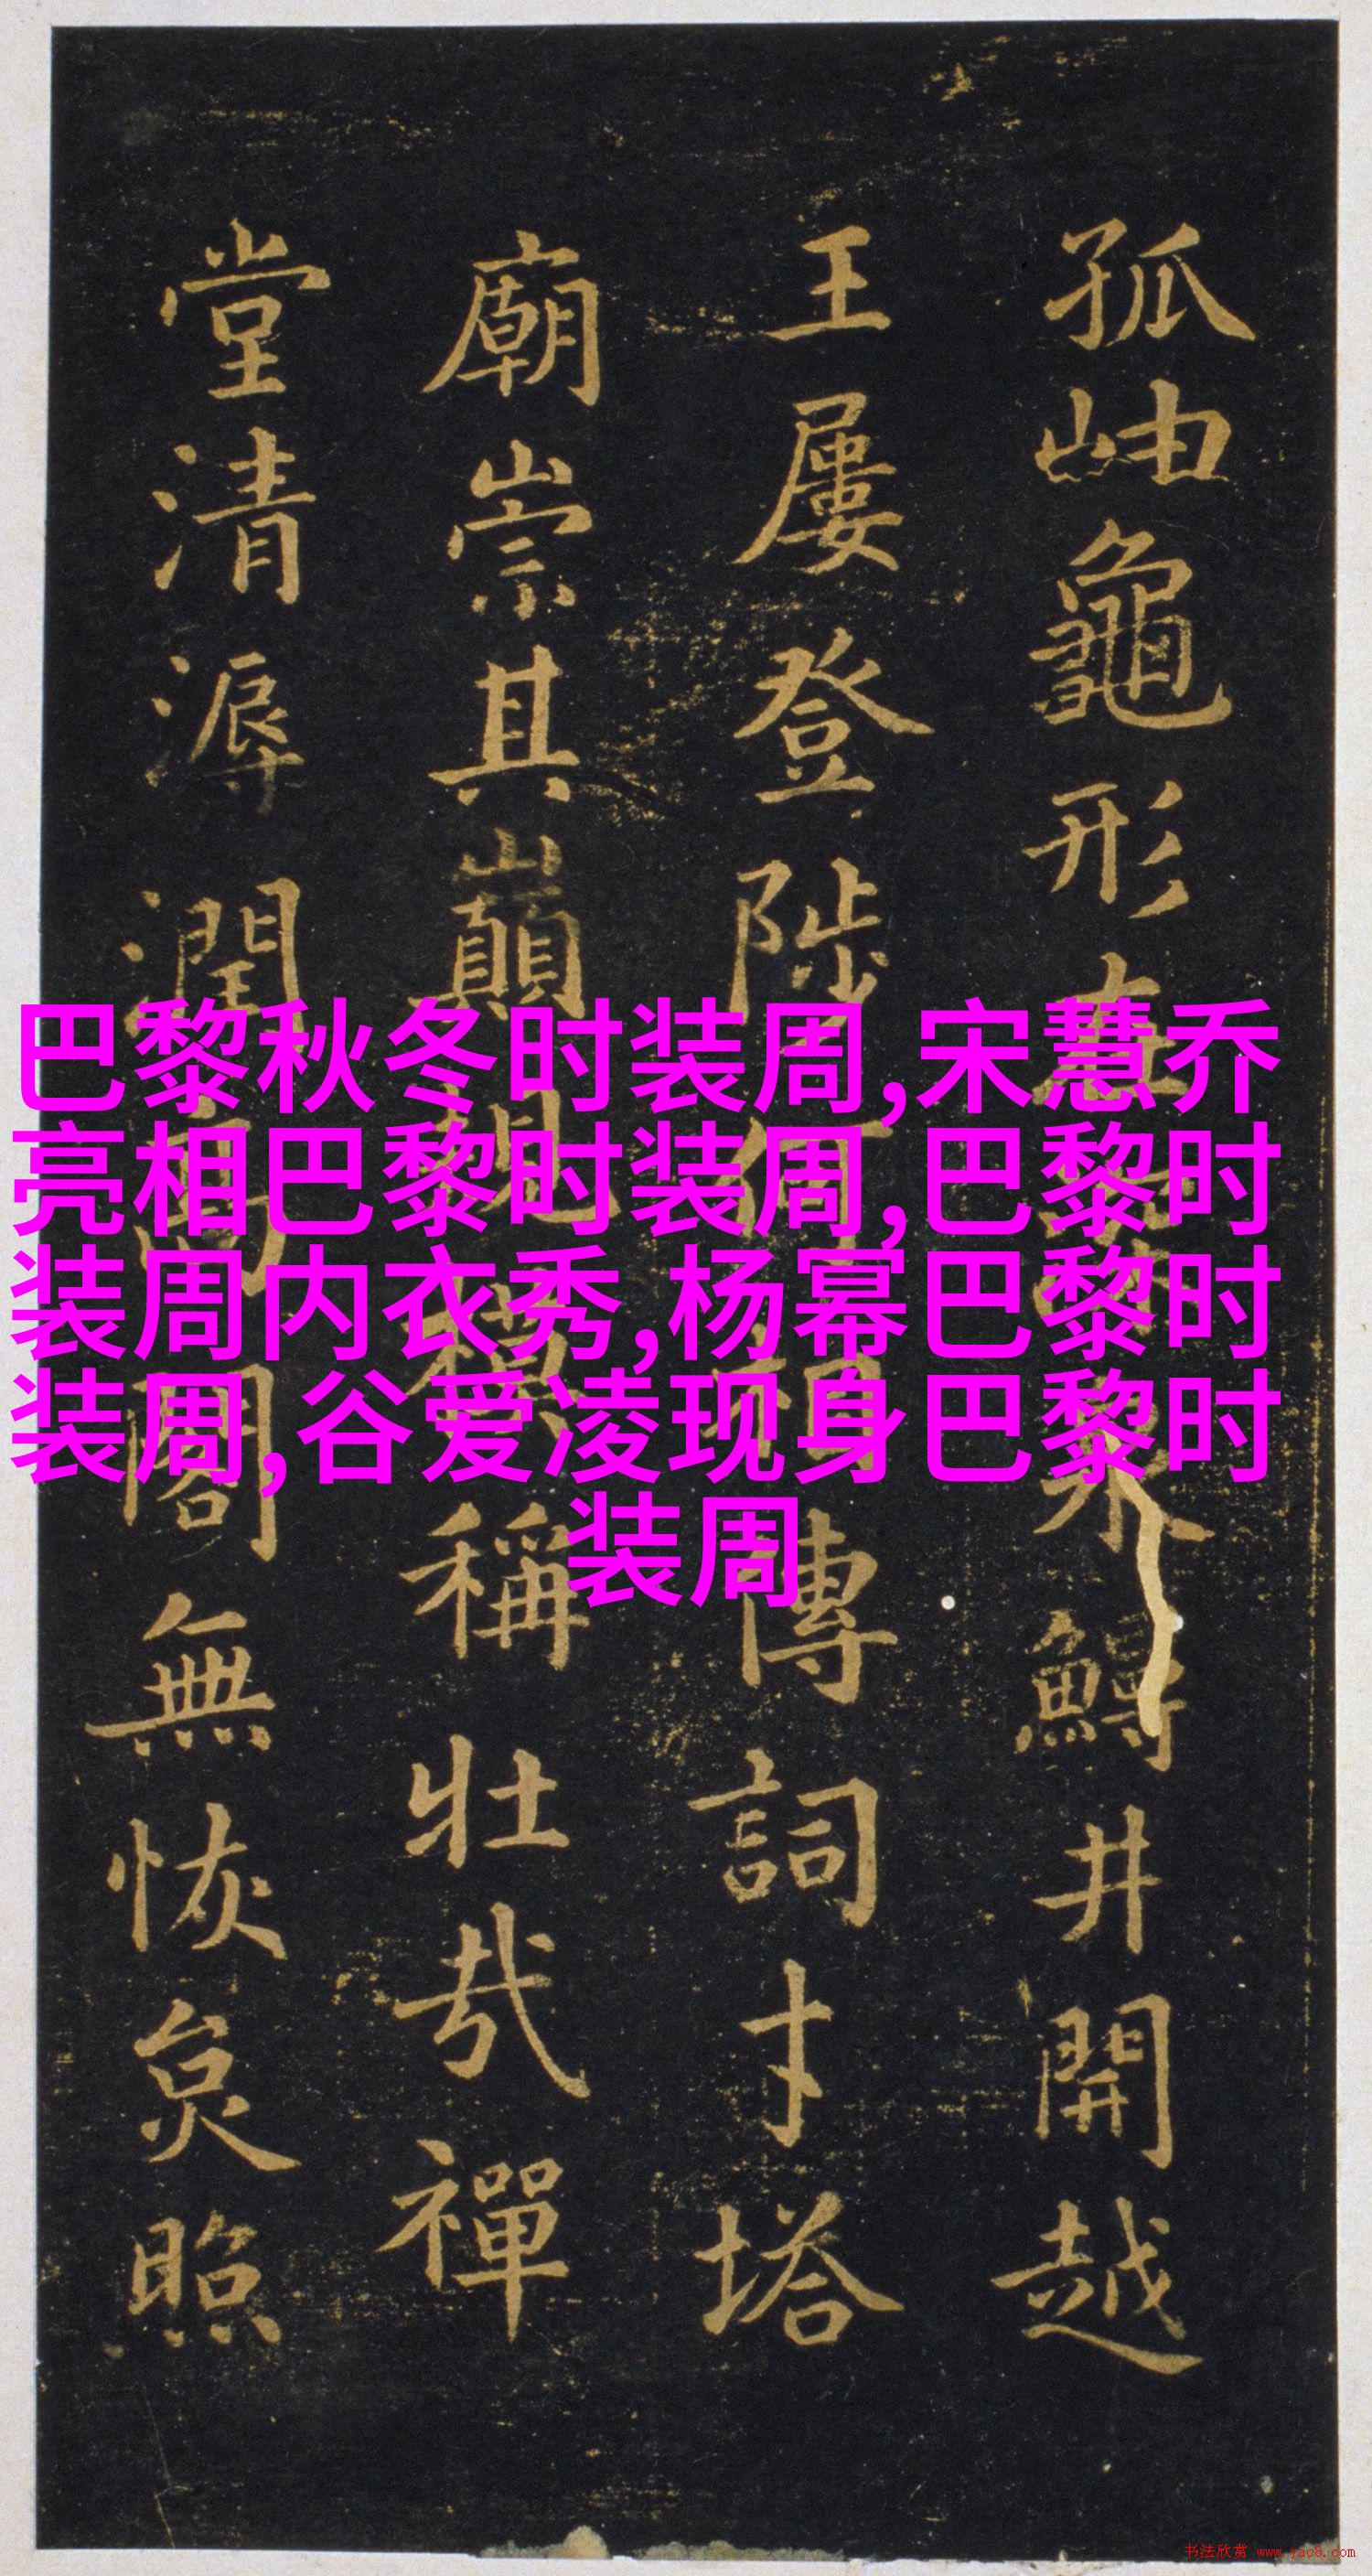 孤岫龜形
井開越
王屢登陟
傳詞才塔
廟崇其巔
稱壯哉禪
堂清漘潤
閣無恢炱照
巴黎秋冬时装周,宋慧乔
亮相巴黎时装周,巴黎时
装周内衣秀,杨幂巴黎时
装周,谷爱凌现身巴黎时
装周
书法欣赏 www.yac8.com